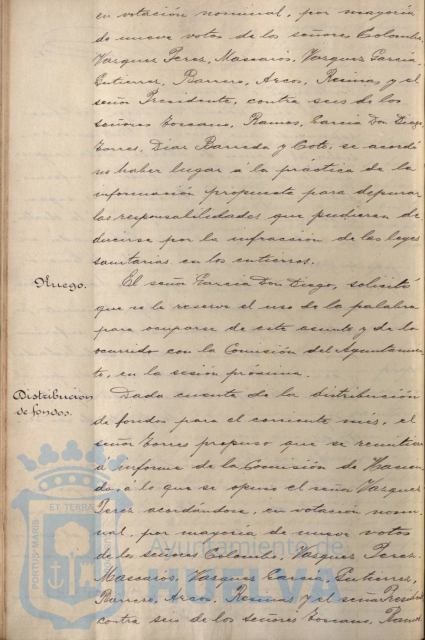 en votación nominal, por mayoría
de nueve votos de los señores Colombo,
Vazquez Perez, Mascarós, Vazquez Garcia,
Gutierrez, Barrero, Arcos, Reinas, y el
señor Presidente, contra seis de los
señores Toscano, Ramos, Garcia Don Diego,
Torres, Diaz Barreda y Coto, se acordó
no haber lugar á la práctica de la
información propuesta para depurar
las responsabilidades que pudieran de
ducirse por la infracción de las leyes
sanitarias en los entierros.
Ruego.
El señor Garcia Don Diego, solicitó
que se le reserve el uso de la palabra
para ocuparse de este asunto y de lo
ocurrido con la Comisión del Ayuntamien
to, en la sesión próxima.
Distribución
de fondos.
Dada cuenta de la distribución
de fondos para el corriente mes, el
señor Torres propuso que se remitiera
á informe de la Comisión de Hacien
da, á lo que se opuso el señor Vazquez
Perez acordándose, en votación nomi
nal, por mayoría de nueve votos
de los señores Colombo, Vazquez Perez,
Mascarós, Vazquez Garcia, Gutierrez,
Barrero, Arcos, Reinas y el señor Presidente
contra seis de los señores Toscano, Ramos
PORTUS MARIS ET TERRAE
Ayuntamiento de
HUELVA